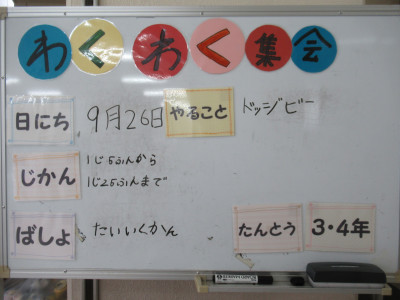 わくわく集会
日にち 9月26日 やること ドッジビー
じかん 1じ5ふんから
1じ25ふんまで
ばしょ たいいくかん たんとう 3・4年